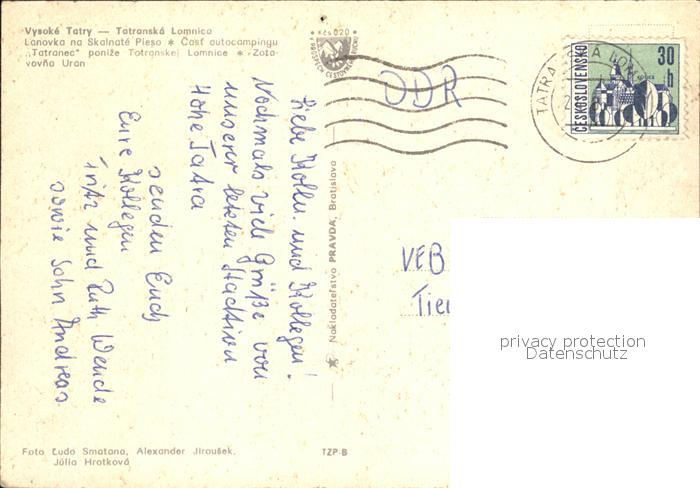 Vysoké Tatry — Tatranská Lomnica
Lanovka na Skalnaté Pleso ✶ Časť autocampingu
„Tatranec" poniže Tatranskej Lomnice ✶ Zota-
vovňa Uran
Kčs 0.20
V PROSPECH CESTOVNÉHO RUCHU
DDR
ČESKOSLOVENSKO
30
h
TATRA
LOM
Liebe Kolln. und Kollegen!
Nochmals viele Grüße von
unserer letzten Station
Hohe Tatra
senden Euch
Eure Kollegen
Fritz und Ruth Wende
sowie Sohn Andreas.
Nakladateľstvo PRAVDA, Bratislava
VEB
privacy protection
Datenschutz
Foto Ľudo Smatana, Alexander Jiroušek,
Júlia Hrotková
TZP-B